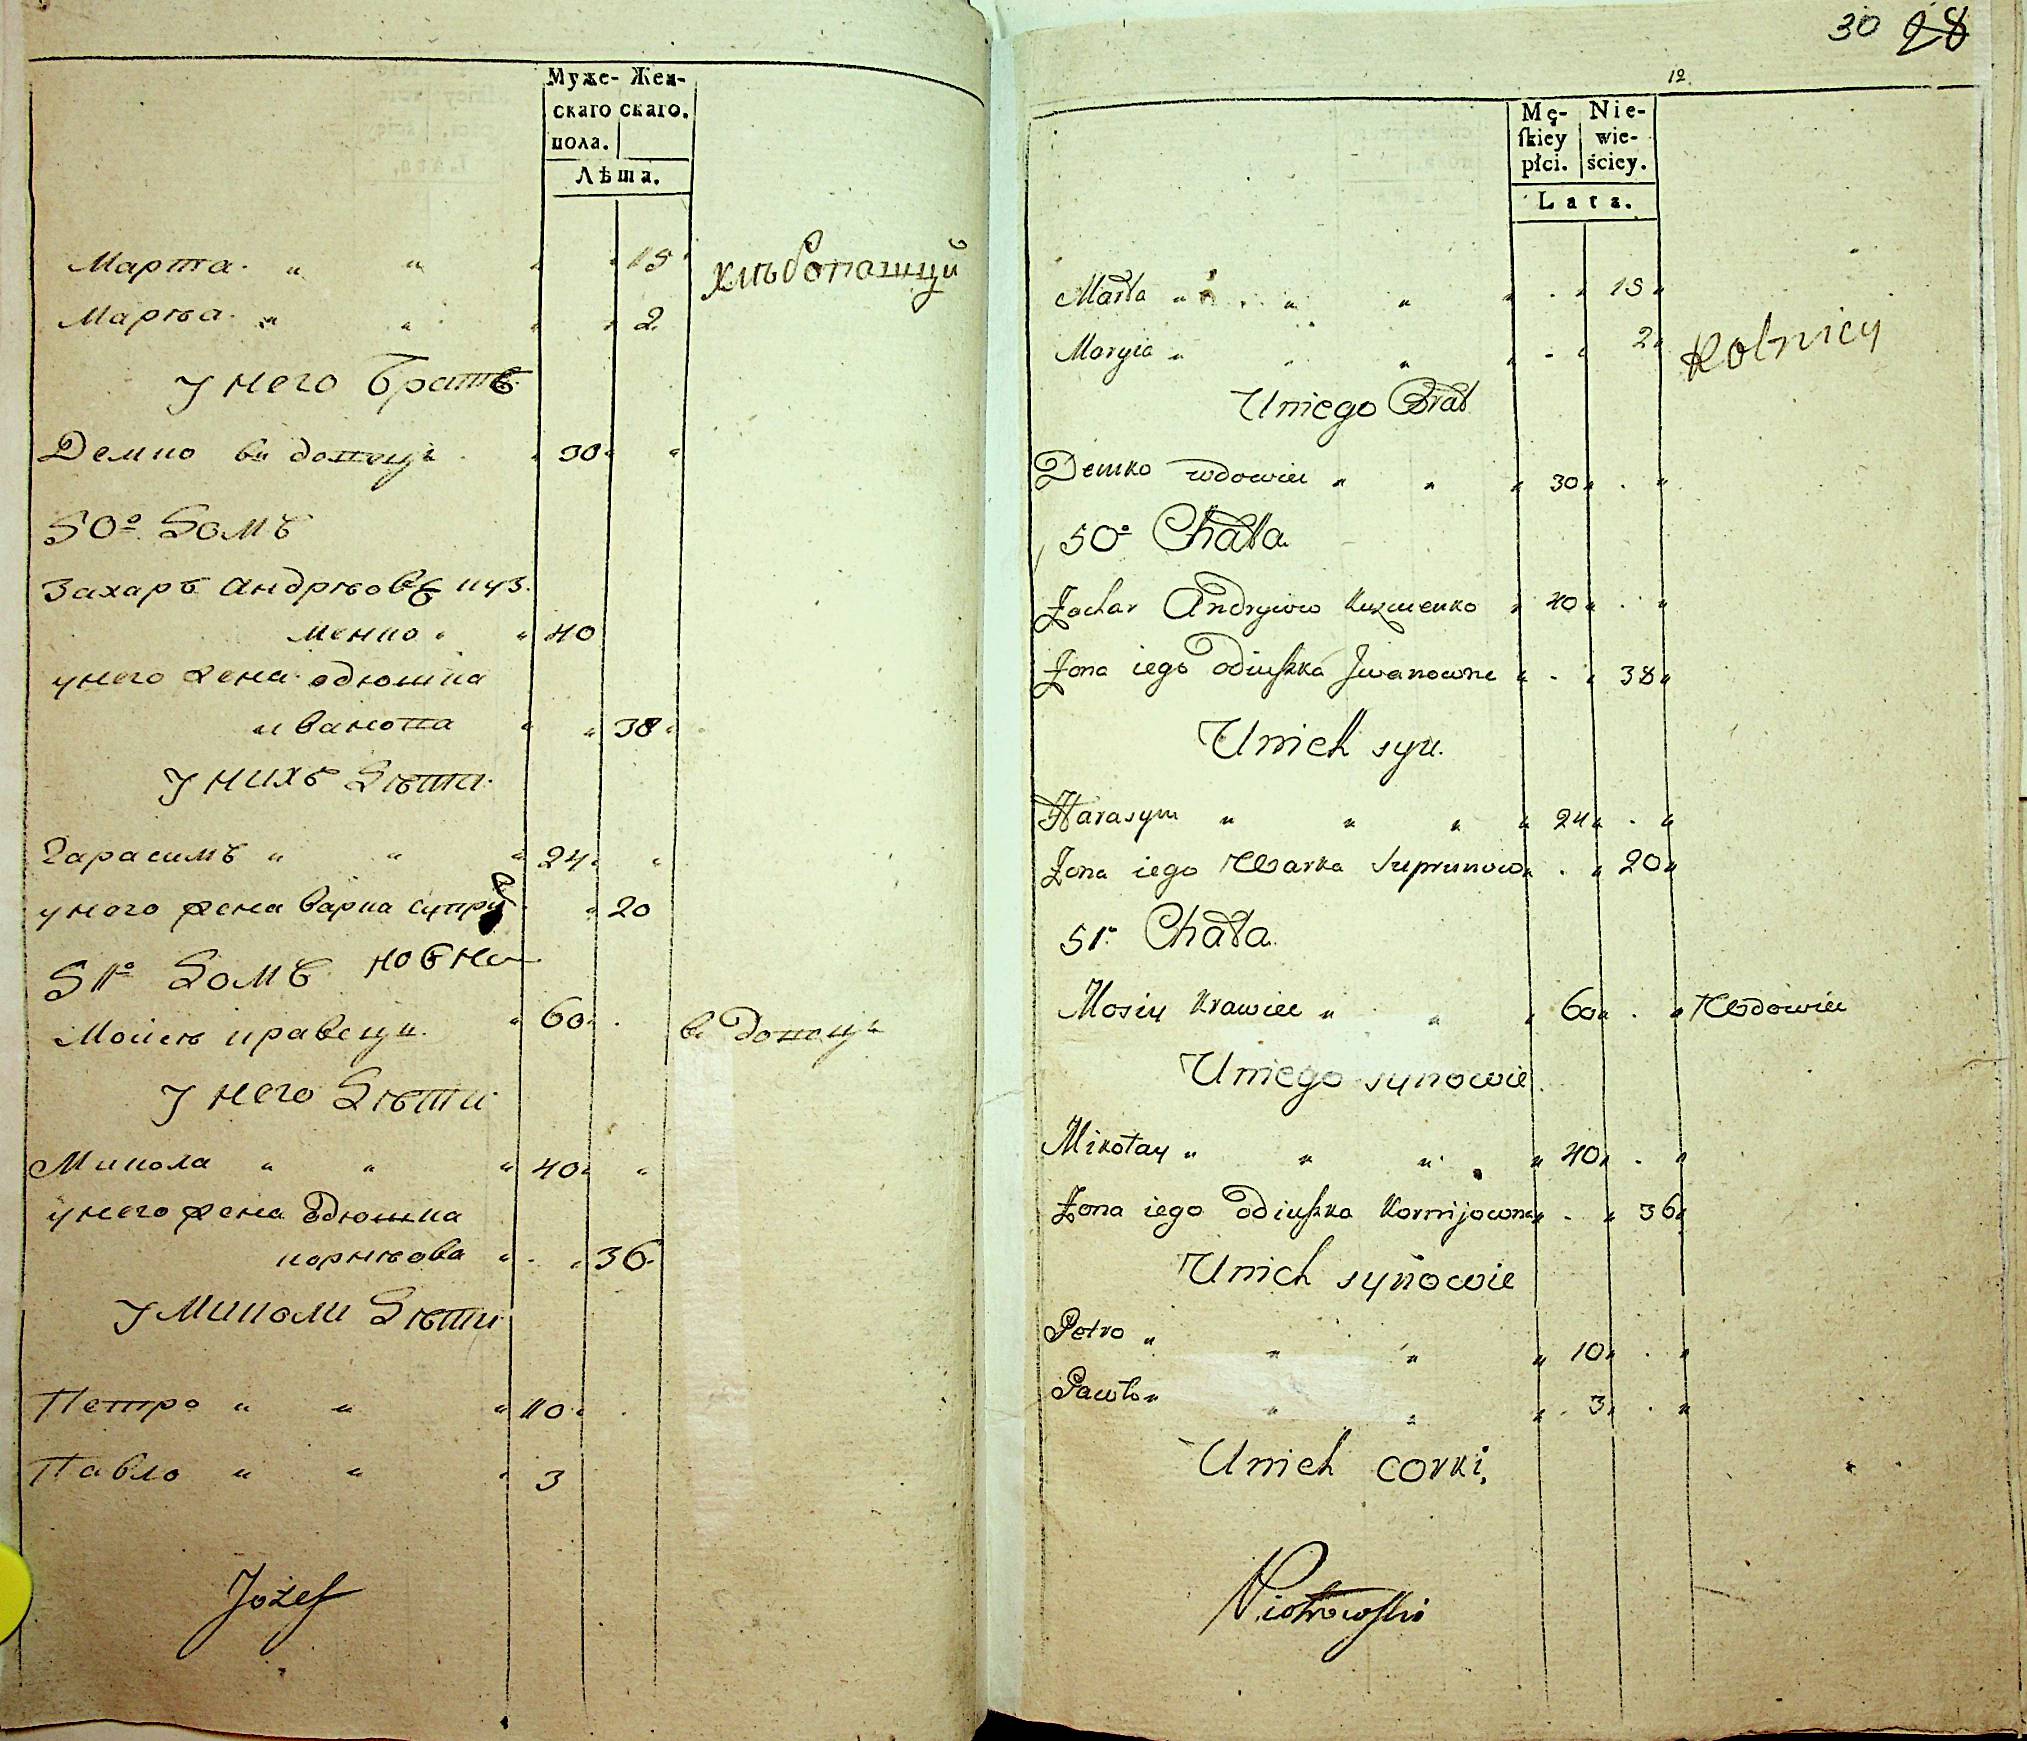 Муже- Жен-
скаго скаго.
пола.
Лѣта.
Марта. " " " " 15
хлѣбопашцы
Марѣа. " " " " 2
У него братъ
Демко вдовецъ " 30 "
50º Домъ
Захаръ Андрѣовъ куз.
менко " " 40
у него жена одюшка
иванова " " 38 "
У нихъ Дѣти
Гарасимъ " " " 24 "
у него жена варка супру
новна
51º Домъ
Мойсѣ кравецъ " 60 "
вдовецъ
У него Дѣти
Микола " " " 40 "
у него жена Одюшка
корнѣова " " 36
У Миколи Дѣти
Петро " " " 10
Павло " " " 3
Jozef
30 28
12
Mę- Nie-
skiey wie-
płci. ściey.
Lata.
Marta " " " " 15 "
Maryia " " " " 2 "
Rolnicy
U niego Brat
Demko wdowiec " " " 30 " "
50º Chata
Zachar Andryiow Kuzmenko " 40 " "
Zona iego Odiuszka Jwanowna " " 38 "
U nich syn.
Harasym " " " " 24 " "
Zona iego Warka Suprunow " " 20 "
51º Chata
Mosiy Krawiec " " " 60 " " Wdowiec
U niego synowie
Mikołay " " " " 40 " "
Zona iego Odiuszka Kornijowna " " 36 "
U nich synowie
Petro " " " " 10 " "
Pawło " " " " 3 " "
U nich corki.
Piotrowski